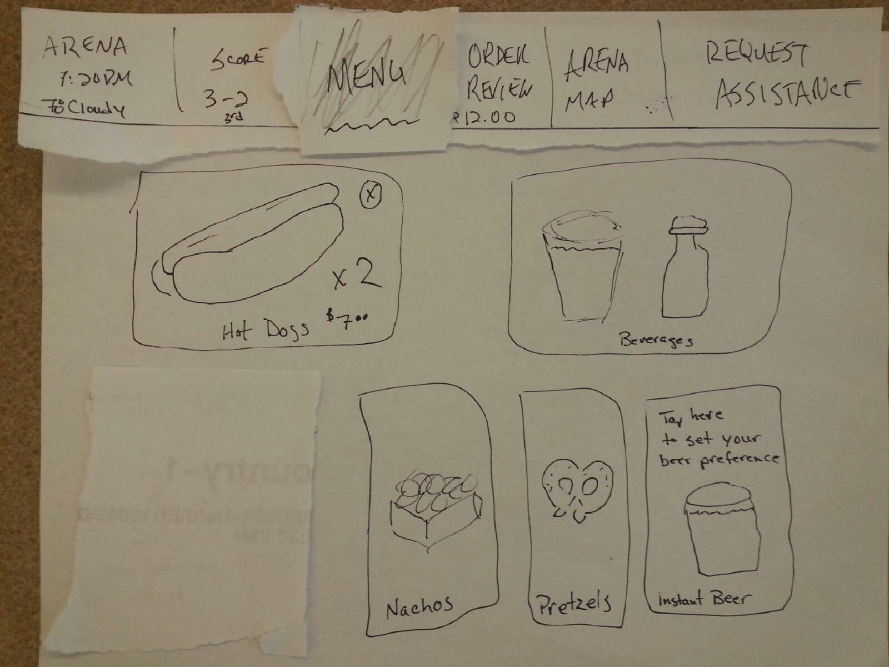 ARENA
7:20PM
Cloudy
SCORE
3-2
3rd
MENU
ORDER
REVIEW
12.00
ARENA
MAP
REQUEST
ASSISTANCE
X
x2
Hot Dogs $7.00
Beverages
Nachos
Pretzels
Tap here
to set your
beer preference
Instant Beer